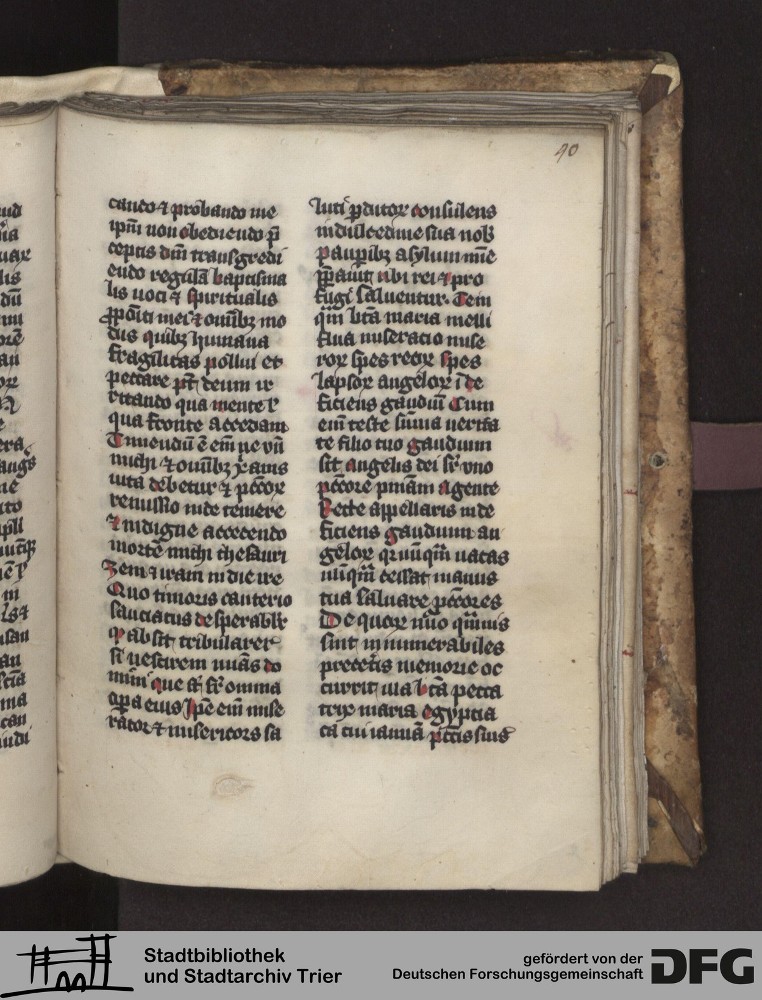 90
cando ⁊ probando me
ipm̄ non obediendo p̄
ceptis dn̄i transgredi
endo regulā baptisma
lis uoci ⁊ spiritualis
ꝓpoīti mei ⁊ om̄ibꝫ mo
dis quibꝫ humana
fragilitas pollui et
peccare pt̄ deum ir
ritando qua mente ł
qua fronte accedam
Timendū ē em̄ ne vn̄
michi ⁊ om̄ibꝫ xp̄ianis
uita debetur ⁊ pctōꝝ
remissio inde temere
⁊ indigne accedendo
mortē michi thesauri
zem ⁊ iram in die ire
Quo timoris cauterio
sauciatus desperabłr
ꝙ absit tribularer
si nescirem mīas do
mini que st̄ sr̄ omnia
opa eius Ipē em̄ mise
rator ⁊ misericors sa
luti ꝑditoꝝ consulens
in dulcedine sua nob̄
pauꝑibꝫ asylum mīe
p̄ꝑauit ubi rei ⁊ pro
fugi saluentur Tem
qm̄ btā maria melli
flua miseracio mise
roꝝ spes reoꝝ spes
lapsoꝝ angeloꝝ īde
ficiens gaudiū Cum
em̄ teste sūma uerita
te filio tuo gaudium
sit angelis dei sr̄ vno
pctōre pn̄iam agente
Recte appellaris inde
ficiens gaudium an
geloꝝ q nūqm̄ uacas
nūqm̄ cessat manus
tua saluare pctōres
De quoꝝ nūo qmuis
sint innumerabiles
preteritis memorie oc
currit illa btā pecca
trix maria egyptia
ca cui ianuā pctīs suis
Stadtbibliothek
und Stadtarchiv Trier
gefördert von der
Deutschen Forschungsgemeinschaft
DFG